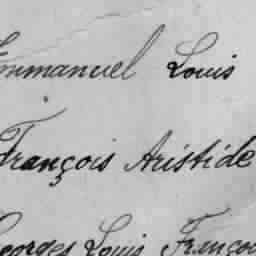 Emmanuel Louis
François Aristide
Georges Louis Françoi